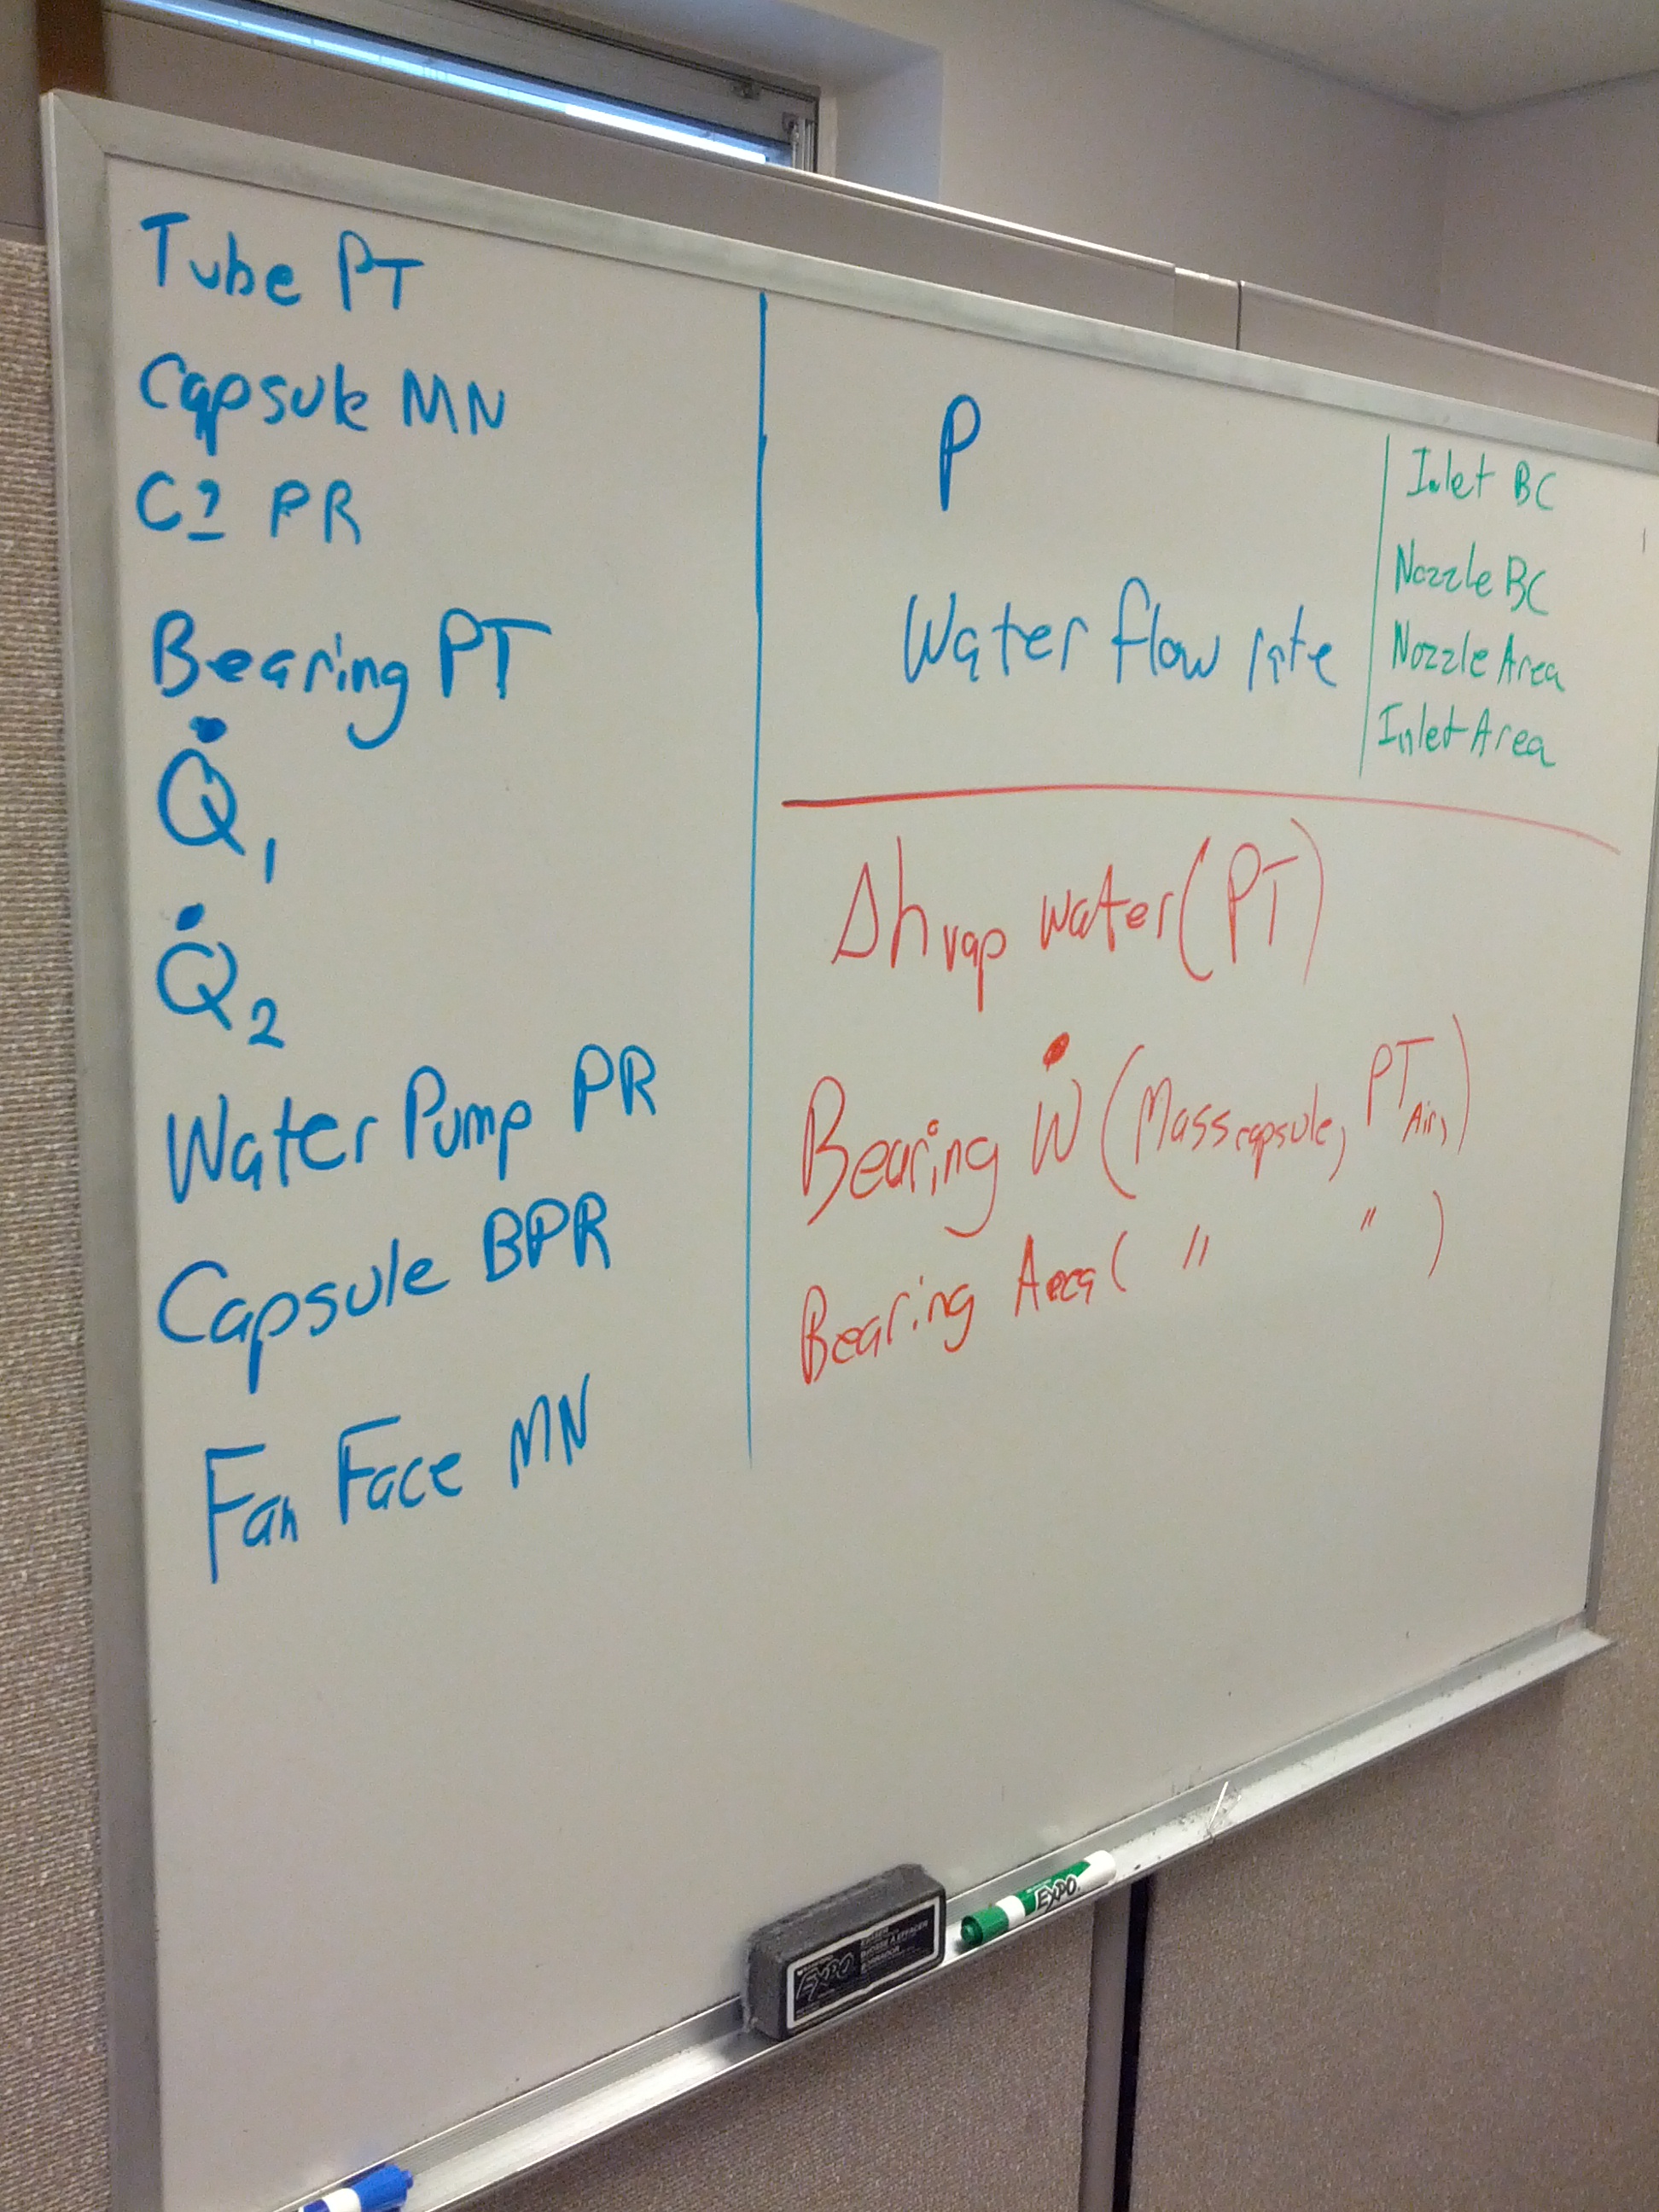 Tube PT
Capsule MN
C2 PR
Bearing PT
Q̇1
Q̇2
Water Pump PR
Capsule BPR
Fan Face MN
P
Water flow rate
Inlet BC
Nozzle BC
Nozzle Area
Inlet Area
Δh vap water (PT)
Bearing Ẇ (Mass capsule, PT Air,)
Bearing Area ( " " )
EXPO
EXPO